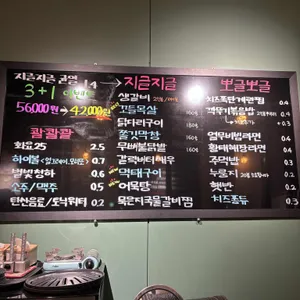 지글지글
3+1 이벤트
56,000원 → 42,000원
콸콸콸
화요25 2.5
하이볼 0.7
별빛청하 0.6
소주/맥주 0.5
탄산음료/토닉워터 0.2
지글지글
생갈비
꼬들목살 160g
닭다리구이
쫄깃막창 160g
무뼈불닭발 160g
갈릭버터새우
먹태구이
어묵탕
묵은지국물갈비찜
뽀글뽀글
치즈폭탄계란찜 0.4
깍뚜기볶음밥 0.4
열무비빔라면 0.4
황태해장라면 0.4
주먹밥 0.3
누룽지 0.3
햇반 0.2
치즈퐁듀 0.3